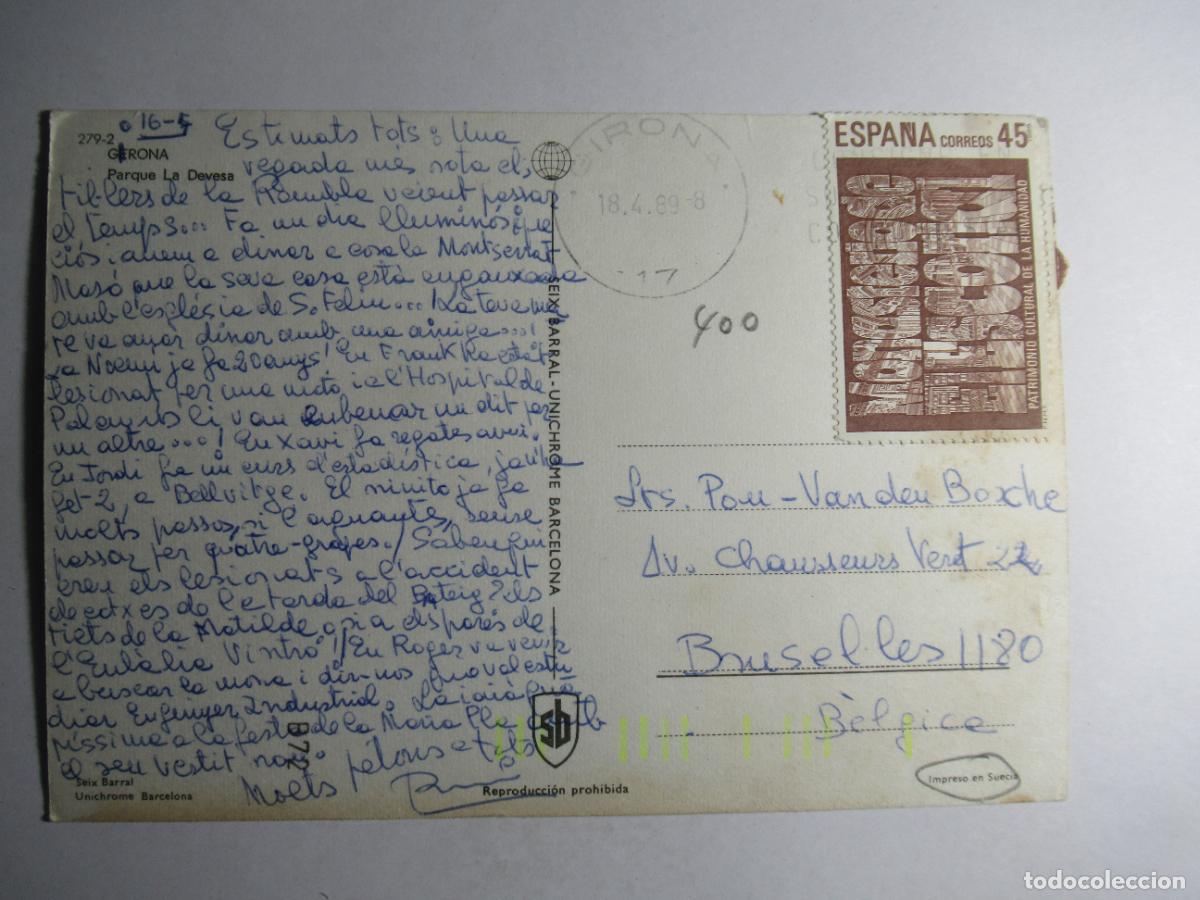 279-2
GERONA
Parque La Devesa
16-5
Estimats tots: Una
vegada més sota els
til·lers de la Rambla veient passar
el temps... Fa un dia lluminós i pre
ciós i anem a dinar a casa la Montserrat
Masó que la seva casa està enganxada
amb l'església de S. Feliu...! La teva ma
re va anar dinar amb una amiga...!
La Noemi ja fa 20 anys! En Frank
lesionat per una moto i a l'Hospital de
Palamós li van embenar un dit per
un altre...! En Xavi fa regates avui.
En Jordi fa un curs d'estadística, ja n'ha
fet 2, a Bellvitge. El ninito ja fa
molts passos, si l'aguantes, sense
passar per quatre-grapes./ Sabeu qui
eren els lesionats a l'accident
de cotxes de la tarda del Bateig? els
tiets de la Matilde, o sia els pares de
l'Eulàlia Vintró!/ En Roger va venir
a buscar la mona i dir-nos que vol estu
diar Enginyer Industrial. La iaia
píssima a la festa de la Maria Pla amb
el seu vestit nou
Molts petons a tots
Seix Barral
Unichrome Barcelona
B 72
Reproducción prohibida
SEIX BARRAL - UNICHROME BARCELONA
SB
GIRONA
18.4.89-8
17
400
ESPAÑA CORREOS 45
PATRIMONIO CULTURAL DE LA HUMANIDAD
Srs. Pou - Vanden Bosche
Av. Chausseurs Vert 22
Brusel·les 1180
Bèlgica
Impreso en Suecia
todocoleccion